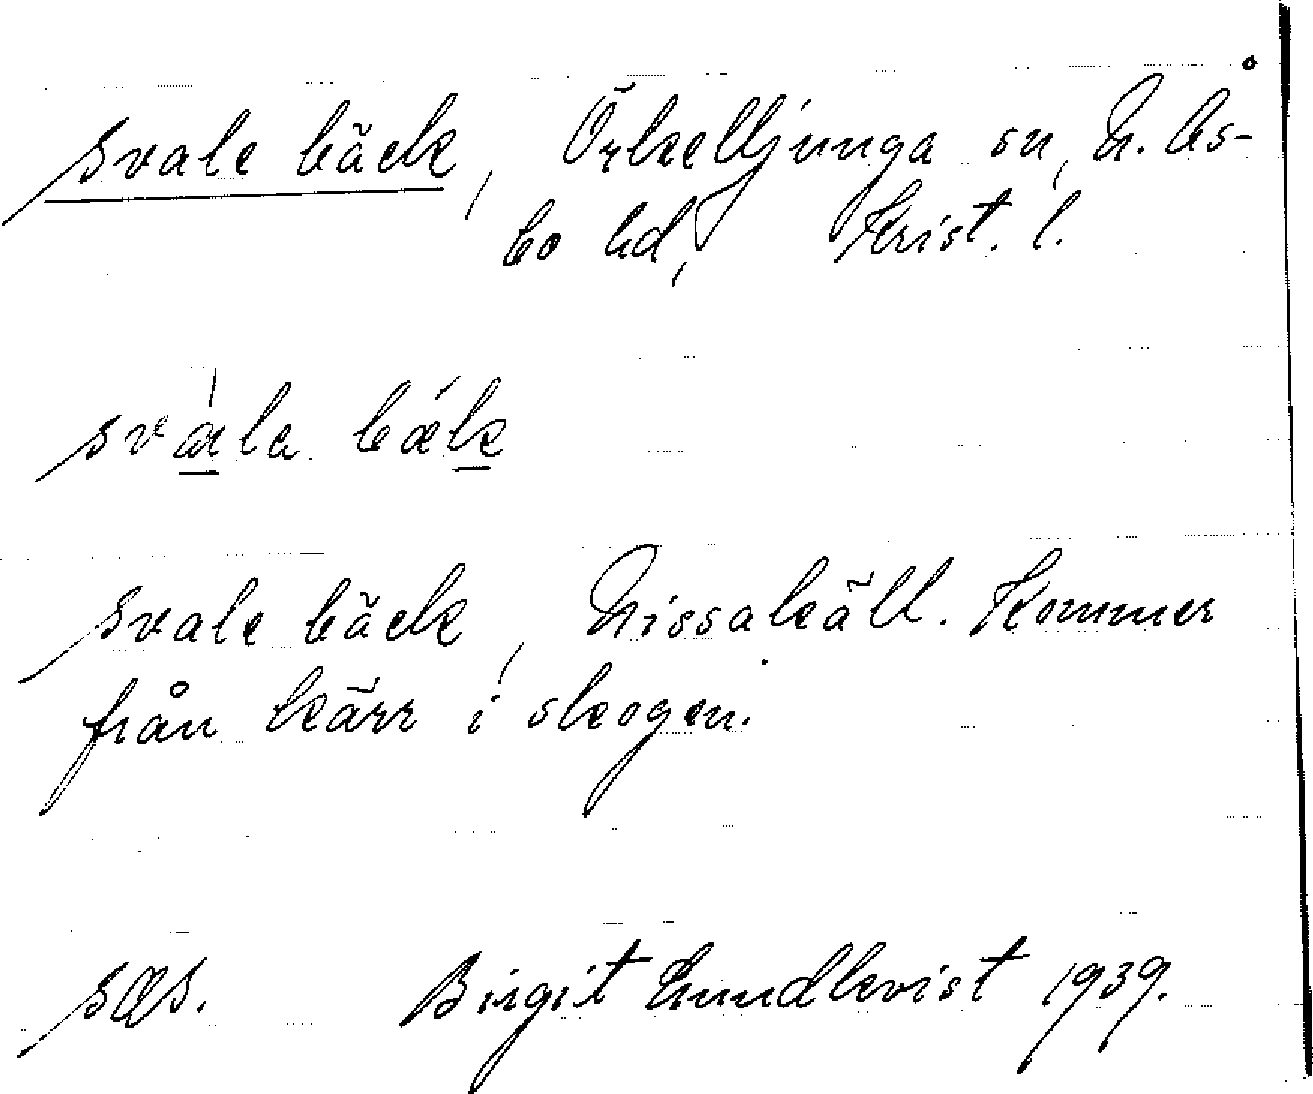 svale bäck, Örkelljunga sn, N. Ås-
bo hd, Krist. l.
svàla bǽk
svale bäck, Lissakäll. Kommer
från kärr i skogen.
sÆs. Birgit Lundkvist 1939.